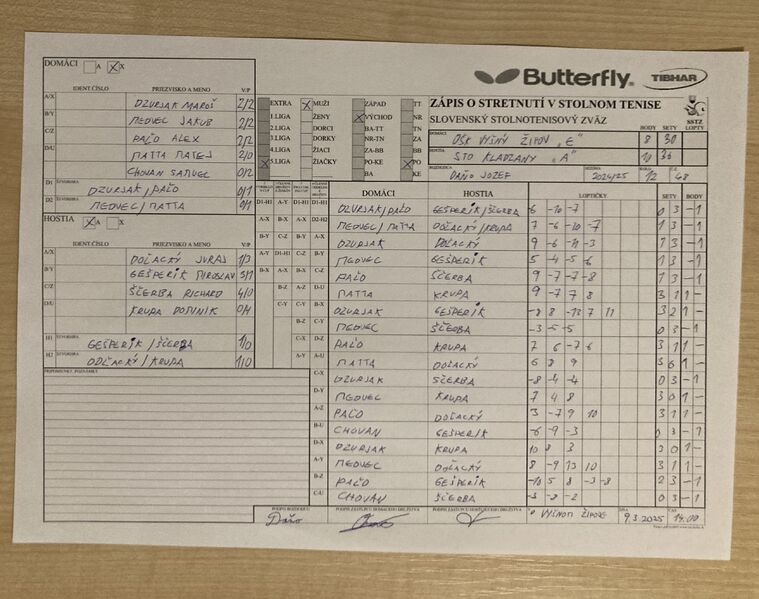 DOMÁCI A X
IDENT.ČÍSLO PRIEZVISKO A MENO V/P
A/X DZURJAK MAROŠ 2/2
B/Y MEDVEC JAKUB 2/2
C/Z PAĽO ALEX 2/2
D/U MATTA MATEJ 2/0
CHOVAN SAMUEL 0/2
D1 ŠTVORHRA DZURJAK/PAĽO 0/1
D2 ŠTVORHRA MEDVEC/MATTA 0/1
HOSTIA A X
IDENT.ČÍSLO PRIEZVISKO A MENO V/P
A/X DOĽACKÝ JURAJ 1/3
B/Y GEŠPERIK MIROSLAV 3/1
C/Z ŠČERBA RICHARD 4/0
D/U KRUPA DOMINIK 0/4
H1 ŠTVORHRA GEŠPERIK/ŠČERBA 1/0
H2 ŠTVORHRA DOĽACKÝ/KRUPA 1/0
PRIPOMIENKY, POZNÁMKY
Butterfly TIBHAR
ZÁPIS O STRETNUTÍ V STOLNOM TENISE
SLOVENSKÝ STOLNOTENISOVÝ ZVÄZ
SSTZ
EXTRA MUŽI ZÁPAD TT
1.LIGA ŽENY VÝCHOD NR
2.LIGA DORCI BA-TT TN
3.LIGA DORKY NR-TN ZA
4.LIGA ŽIACI ZA-BB BB
5.LIGA ŽIAČKY PO-KE PO
BA KE
BODY SETY LOPTY
DOMÁCI OŠK VYŠNÝ ŽIPOV "E" 8 30
HOSTIA STO KLADZANY "A" 10 36
DAŇO JOZEF 2024/25 12
DOMÁCI HOSTIA LOPTIČKY SETY BODY
DZURJAK/PAĽO GEŠPERIK/ŠČERBA -6 -10 -7 0 3 - 1
MEDVEC/MATTA DOĽACKÝ/KRUPA 7 -6 -10 -7 1 3 - 1
DZURJAK DOĽACKÝ 9 -6 -11 -3 1 3 - 1
MEDVEC GEŠPERIK 5 -4 -5 -6 1 3 - 1
PAĽO ŠČERBA 9 -7 -7 -8 1 3 - 1
MATTA KRUPA 9 -7 7 8 3 1 1 -
DZURJAK GEŠPERIK -8 8 -13 7 11 3 2 1 -
MEDVEC ŠČERBA -3 -5 -5 0 3 - 1
PAĽO KRUPA 7 6 -7 6 3 1 1 -
MATTA DOĽACKÝ 6 8 9 3 0 1 -
DZURJAK ŠČERBA -8 -4 -4 0 3 - 1
MEDVEC KRUPA 7 4 8 3 0 1 -
PAĽO DOĽACKÝ 3 -7 9 10 3 1 1 -
CHOVAN GEŠPERIK -6 -9 -3 0 3 - 1
DZURJAK KRUPA 10 8 3 3 0 1 -
MEDVEC DOĽACKÝ 8 -9 13 10 3 1 1 -
PAĽO GEŠPERIK -10 5 8 -3 -8 2 3 - 1
CHOVAN ŠČERBA -3 -8 -2 0 3 - 1
PODPIS ROZHODCU PODPIS ZÁSTUPCU DOMÁCEHO DRUŽSTVA PODPIS ZÁSTUPCU HOSŤUJÚCEHO DRUŽSTVA V DŇA ČAS
Daňo VYŠNOM ŽIPOVE 9.3.2025 14.00